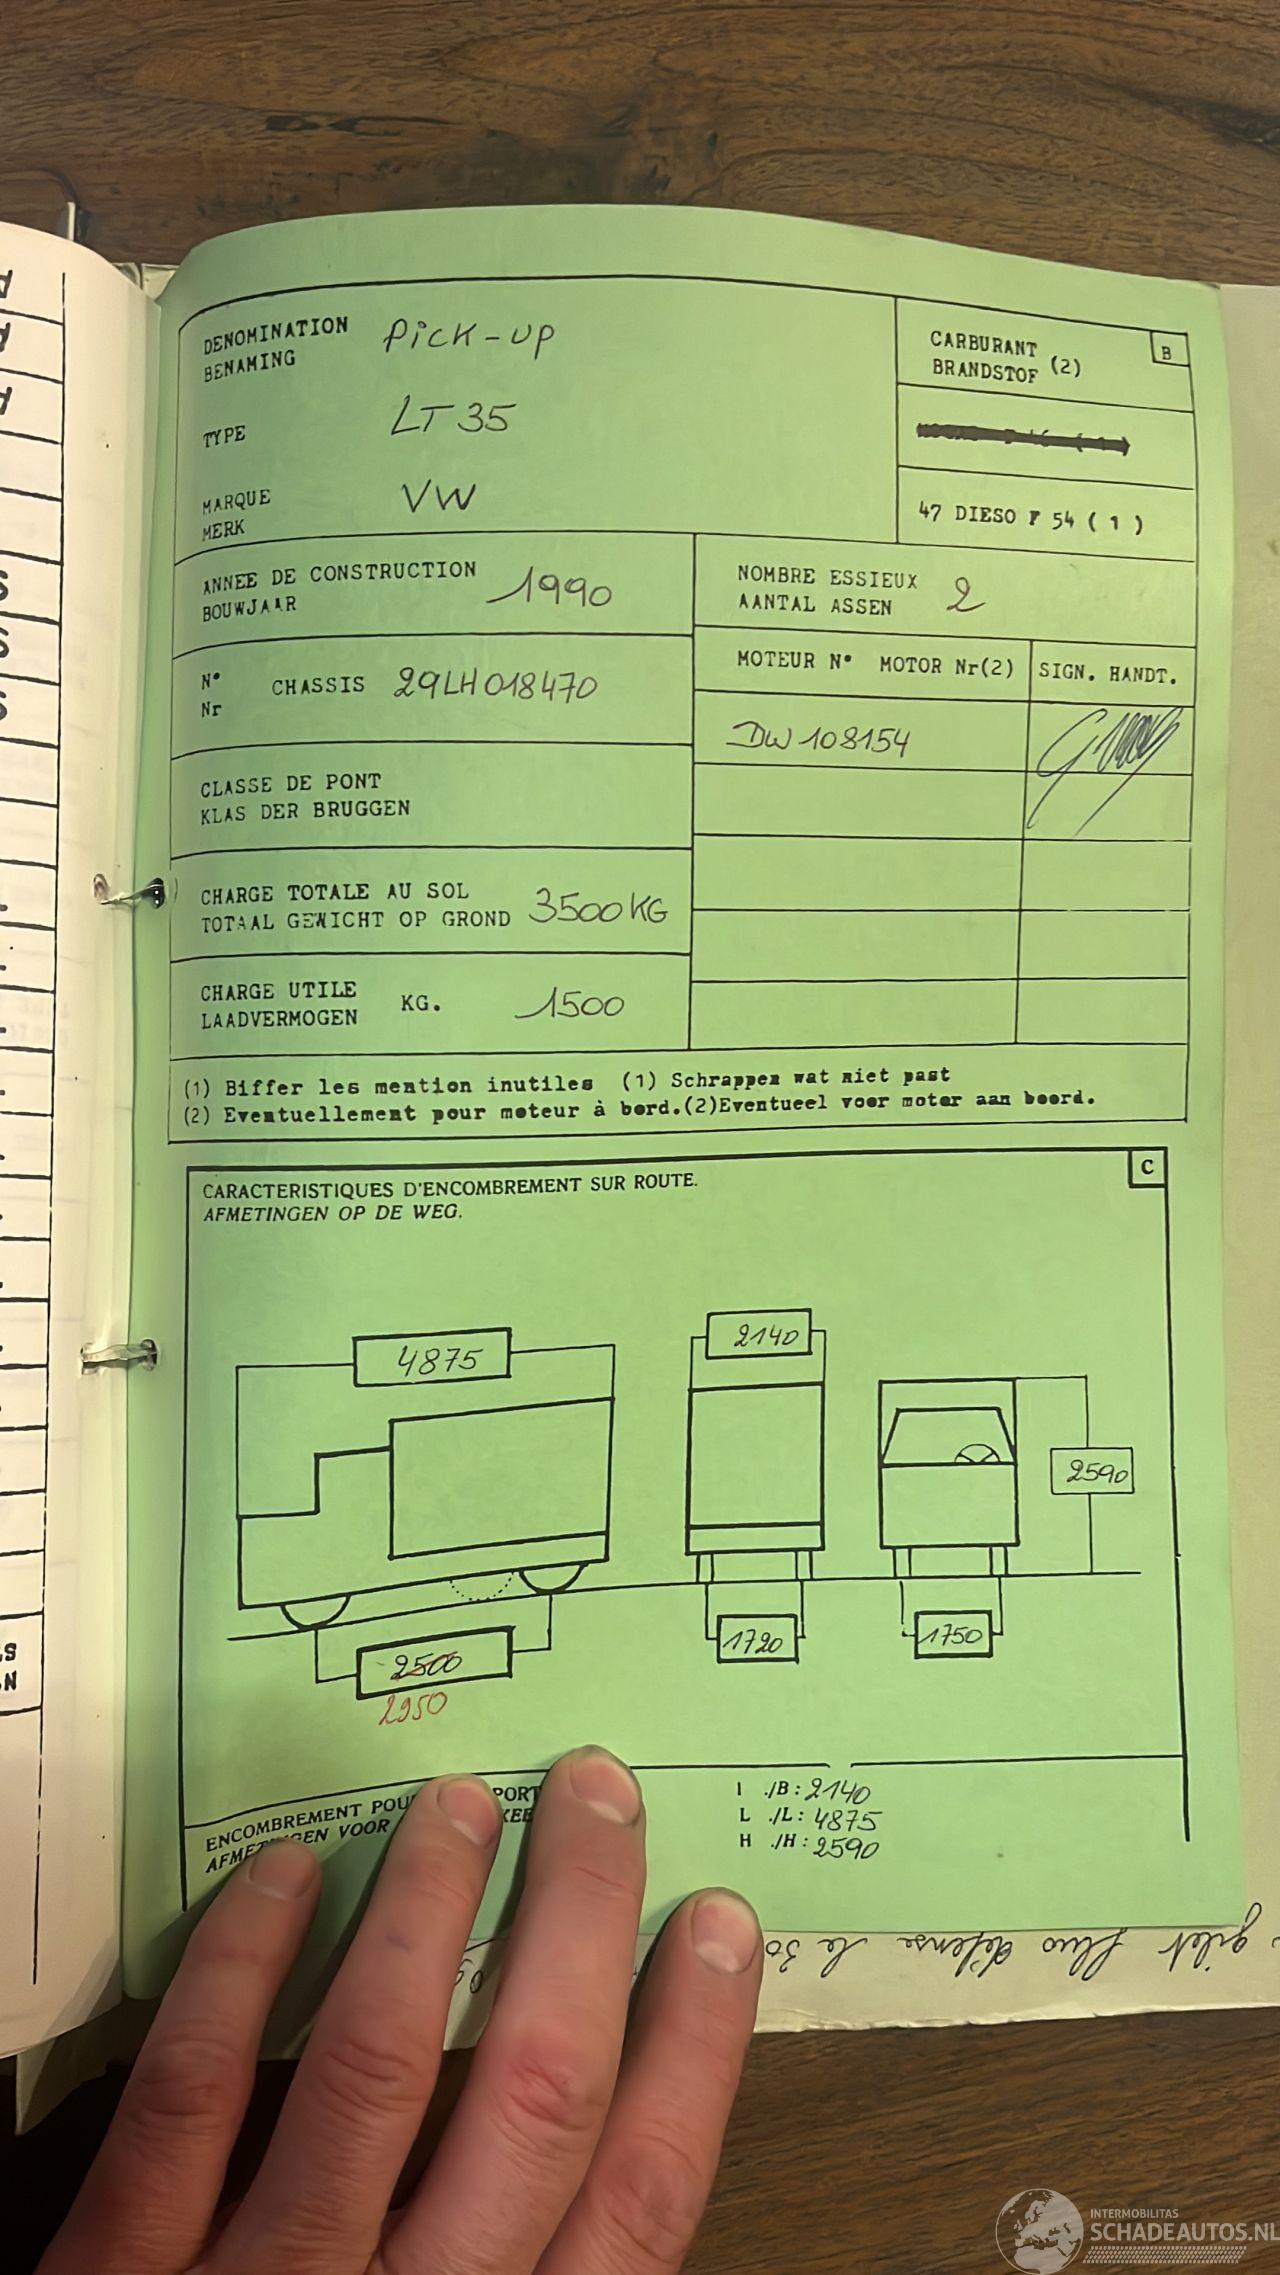 DENOMINATION
BENAMING
Pick-up
TYPE
LT 35
MARQUE
MERK
VW
B
CARBURANT (2)
BRANDSTOF
47 DIESO F 54 ( 1 )
ANNEE DE CONSTRUCTION
BOUWJAAR
1990
NOMBRE ESSIEUX
AANTAL ASSEN
2
N° CHASSIS 29LH018470
Nr
MOTEUR N° MOTOR Nr(2)
SIGN. HANDT.
DW 108154
CLASSE DE PONT
KLAS DER BRUGGEN
CHARGE TOTALE AU SOL
TOTAAL GEWICHT OP GROND
3500 KG
CHARGE UTILE
LAADVERMOGEN
KG. 1500
(1) Biffer les mention inutiles (1) Schrappen wat niet past
(2) Eventuellement pour moteur à bord.(2)Eventueel voor motor aan boord.
C
CARACTERISTIQUES D'ENCOMBREMENT SUR ROUTE.
AFMETINGEN OP DE WEG.
4875
2140
2590
2500
2950
1720
1750
ENCOMBREMENT
VOOR
I ./B: 2140
L ./L: 4875
H ./H: 2590
gilet fluo défense le 30
INTERMOBILITAS
SCHADEAUTOS.NL